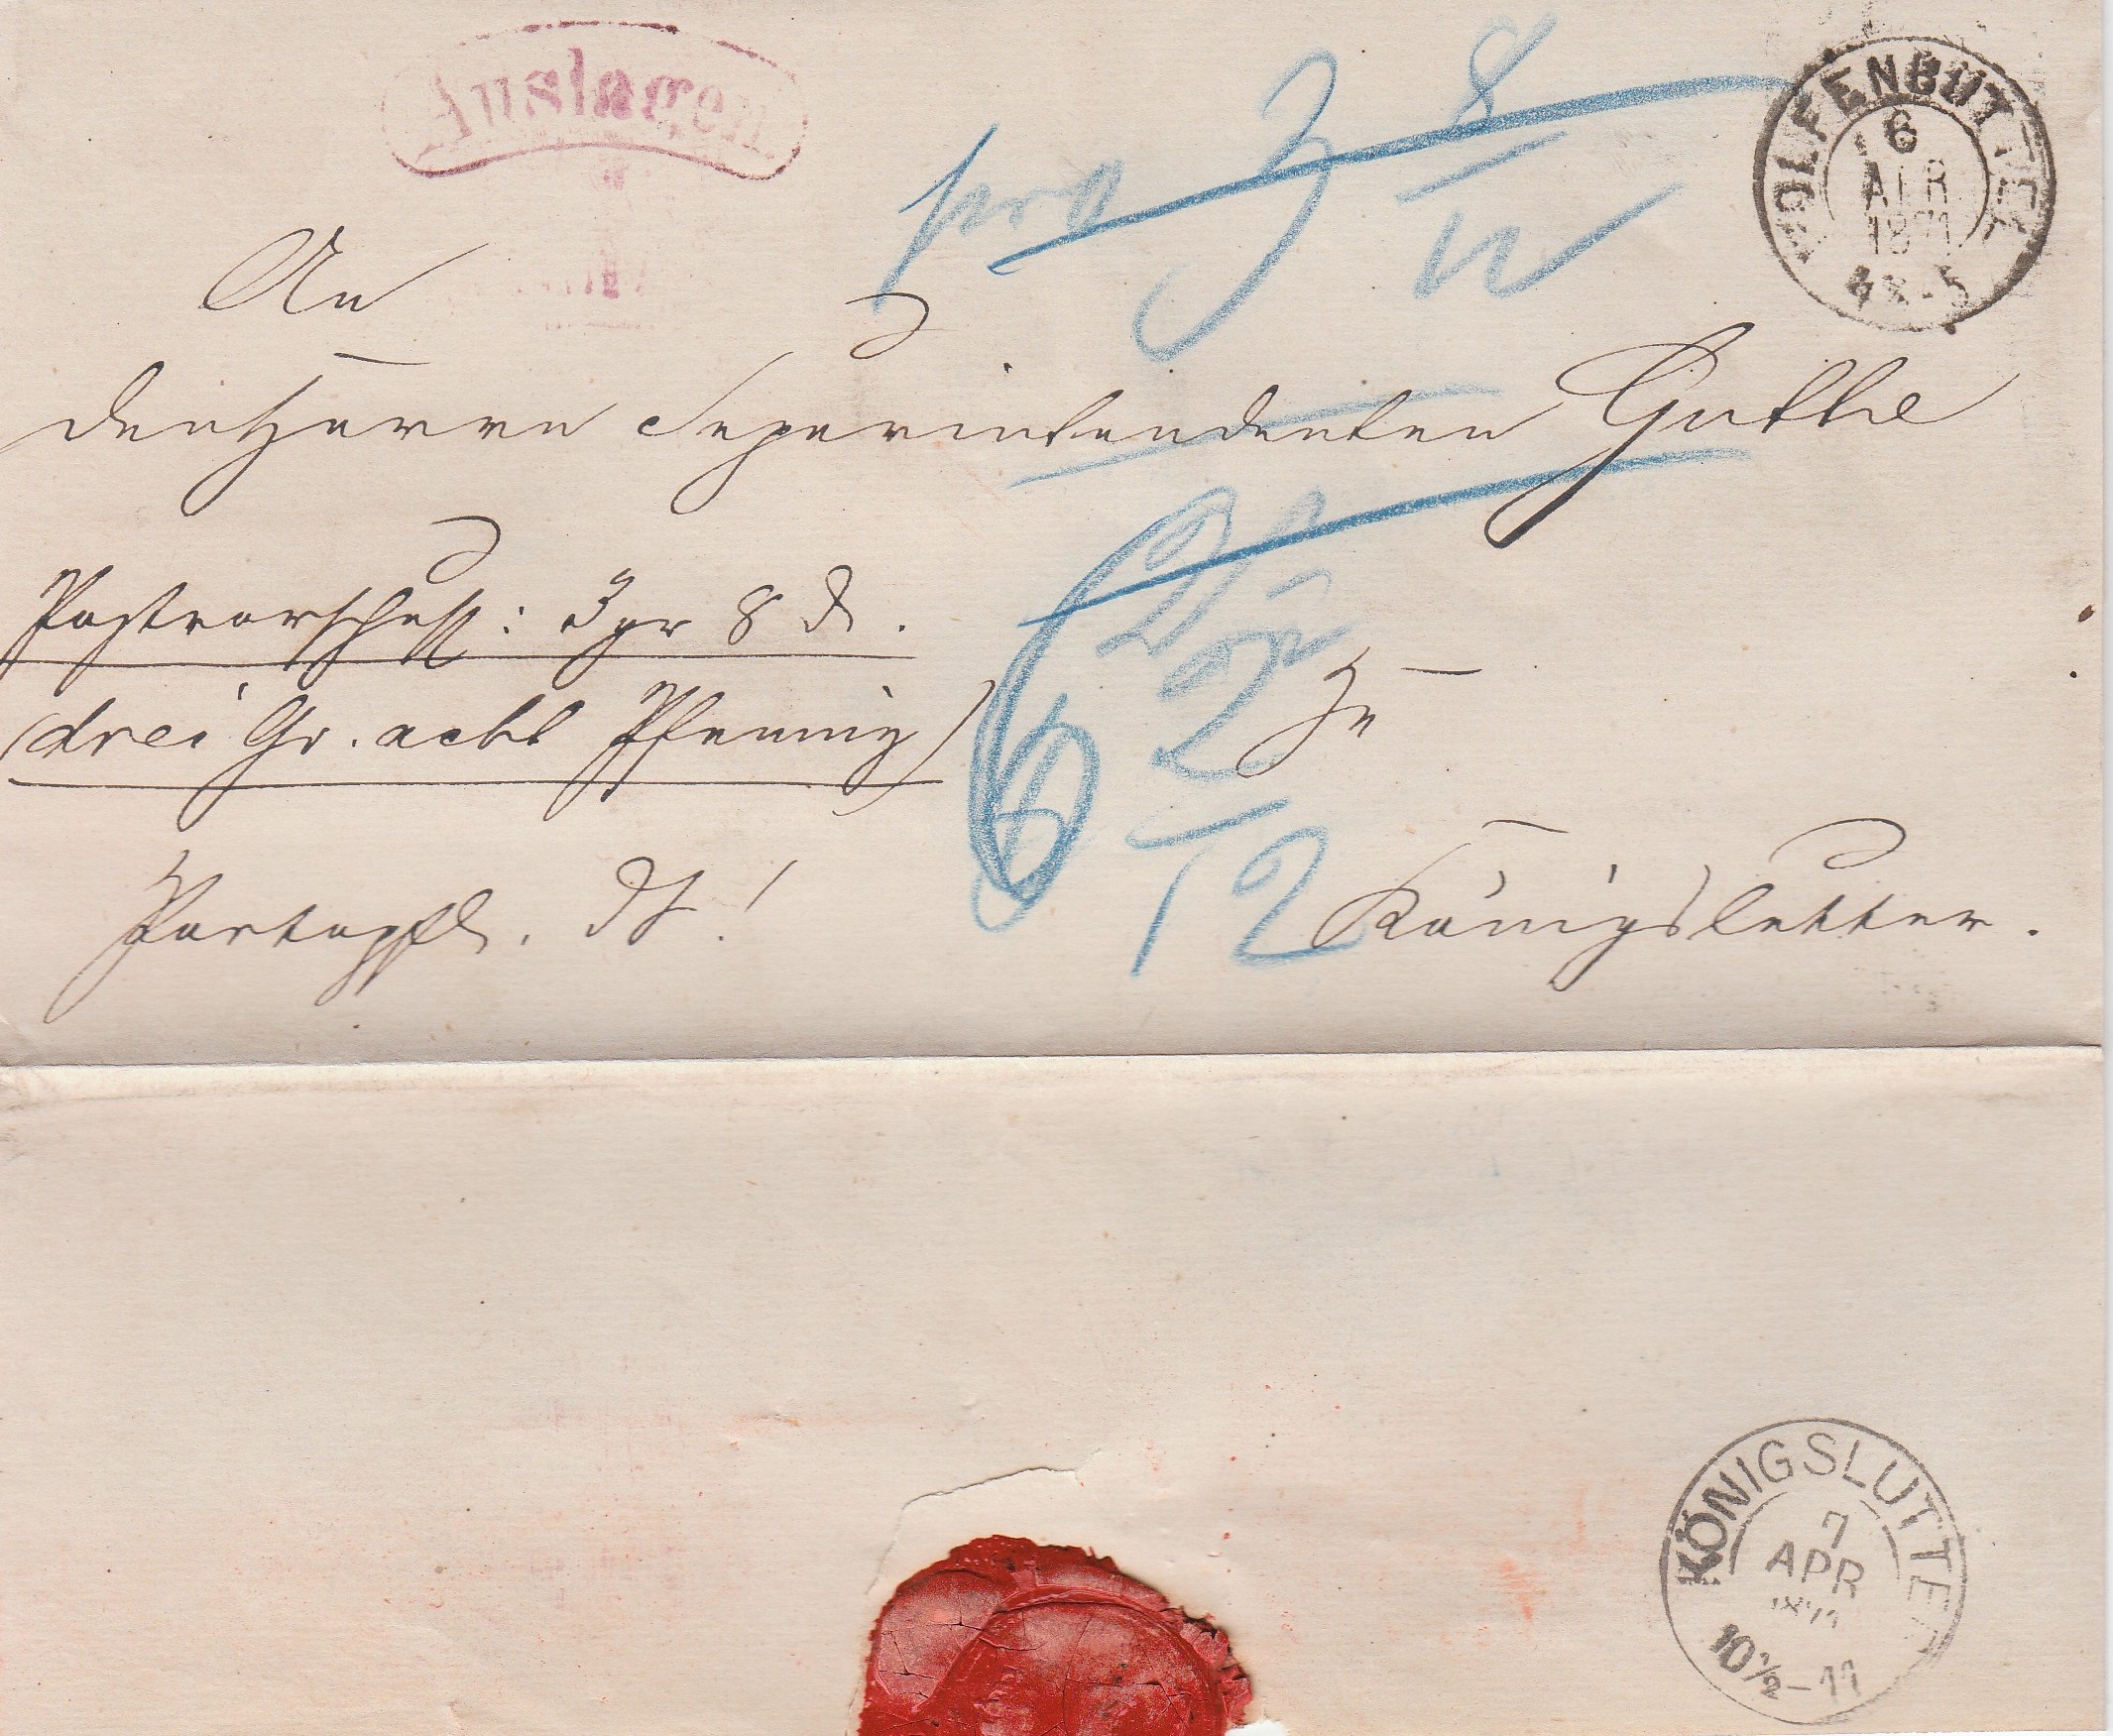 Auslagen
WOLFENBÜTTEL
6
APR
1871
4½-5
pro 3 8
An
den Herrn Superintendenten Guthe
Postvorschuß: 3 gr 8 d.
(drei Gr. acht Pfennig)
zu
6 2
12
Portopfl. DS!
Königslutter.
KÖNIGSLUTTER
7
APR
1871
10½-11